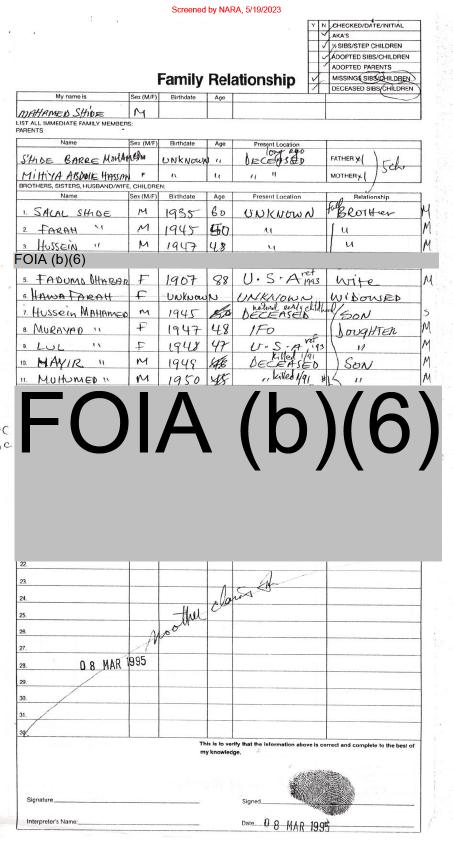 Screened by NARA, 5/19/2023
Y N CHECKED/DATE/INITIAL
AKA'S
½ SIBS/STEP CHILDREN
ADOPTED SIBS/CHILDREN
ADOPTED PARENTS
MISSING SIBS/CHILDREN
DECEASED SIBS/CHILDREN
Family Relationship
My name is Sex (M/F) Birthdate Age
MAHAMED SHIDE M
LIST ALL IMMEDIATE FAMILY MEMBERS:
PARENTS
Name Sex (M/F) Birthdate Age Present Location
SHIDE BARRE UNKNOWN " long ago DECEASED FATHER
ABDULE HASSAN " " " " " MOTHER
BROTHERS, SISTERS, HUSBAND/WIFE, CHILDREN:
Name Sex (M/F) Birthdate Age Present Location Relationship
1. SALAL SHIDE M 1935 60 UNKNOWN full BROTHER M
2. FARAH " M 1945 50 " " M
3. HUSSEIN " M 1947 48 " " M
FOIA (b)(6)
5. FADUMO DHABAR F 1907 88 U.S.A ref 1993 Wife M
6. HAWA FARAH F UNKNOWN UNKNOWN WIDOWED
7. HUSSEIN MAHAMED M 1945 natural early childhood DECEASED SON S
8. MURAYAD " F 1947 48 IFO DOUGHTER M
9. LUL " F 1948 47 U.S.A ref '93 " M
10. HAYIR " M 1949 killed 1/91 DECEASED SON M
11. MUHUMED " M 1950 " killed 1/91 " M
FOIA (b)(6)
22.
23.
24.
25.
26.
27.
28.
29.
30.
31.
another claims
08 MAR 1995
This is to verify that the information above is correct and complete to the best of
my knowledge.
Signature Signed
Interpreter's Name: Date 08 MAR 1995